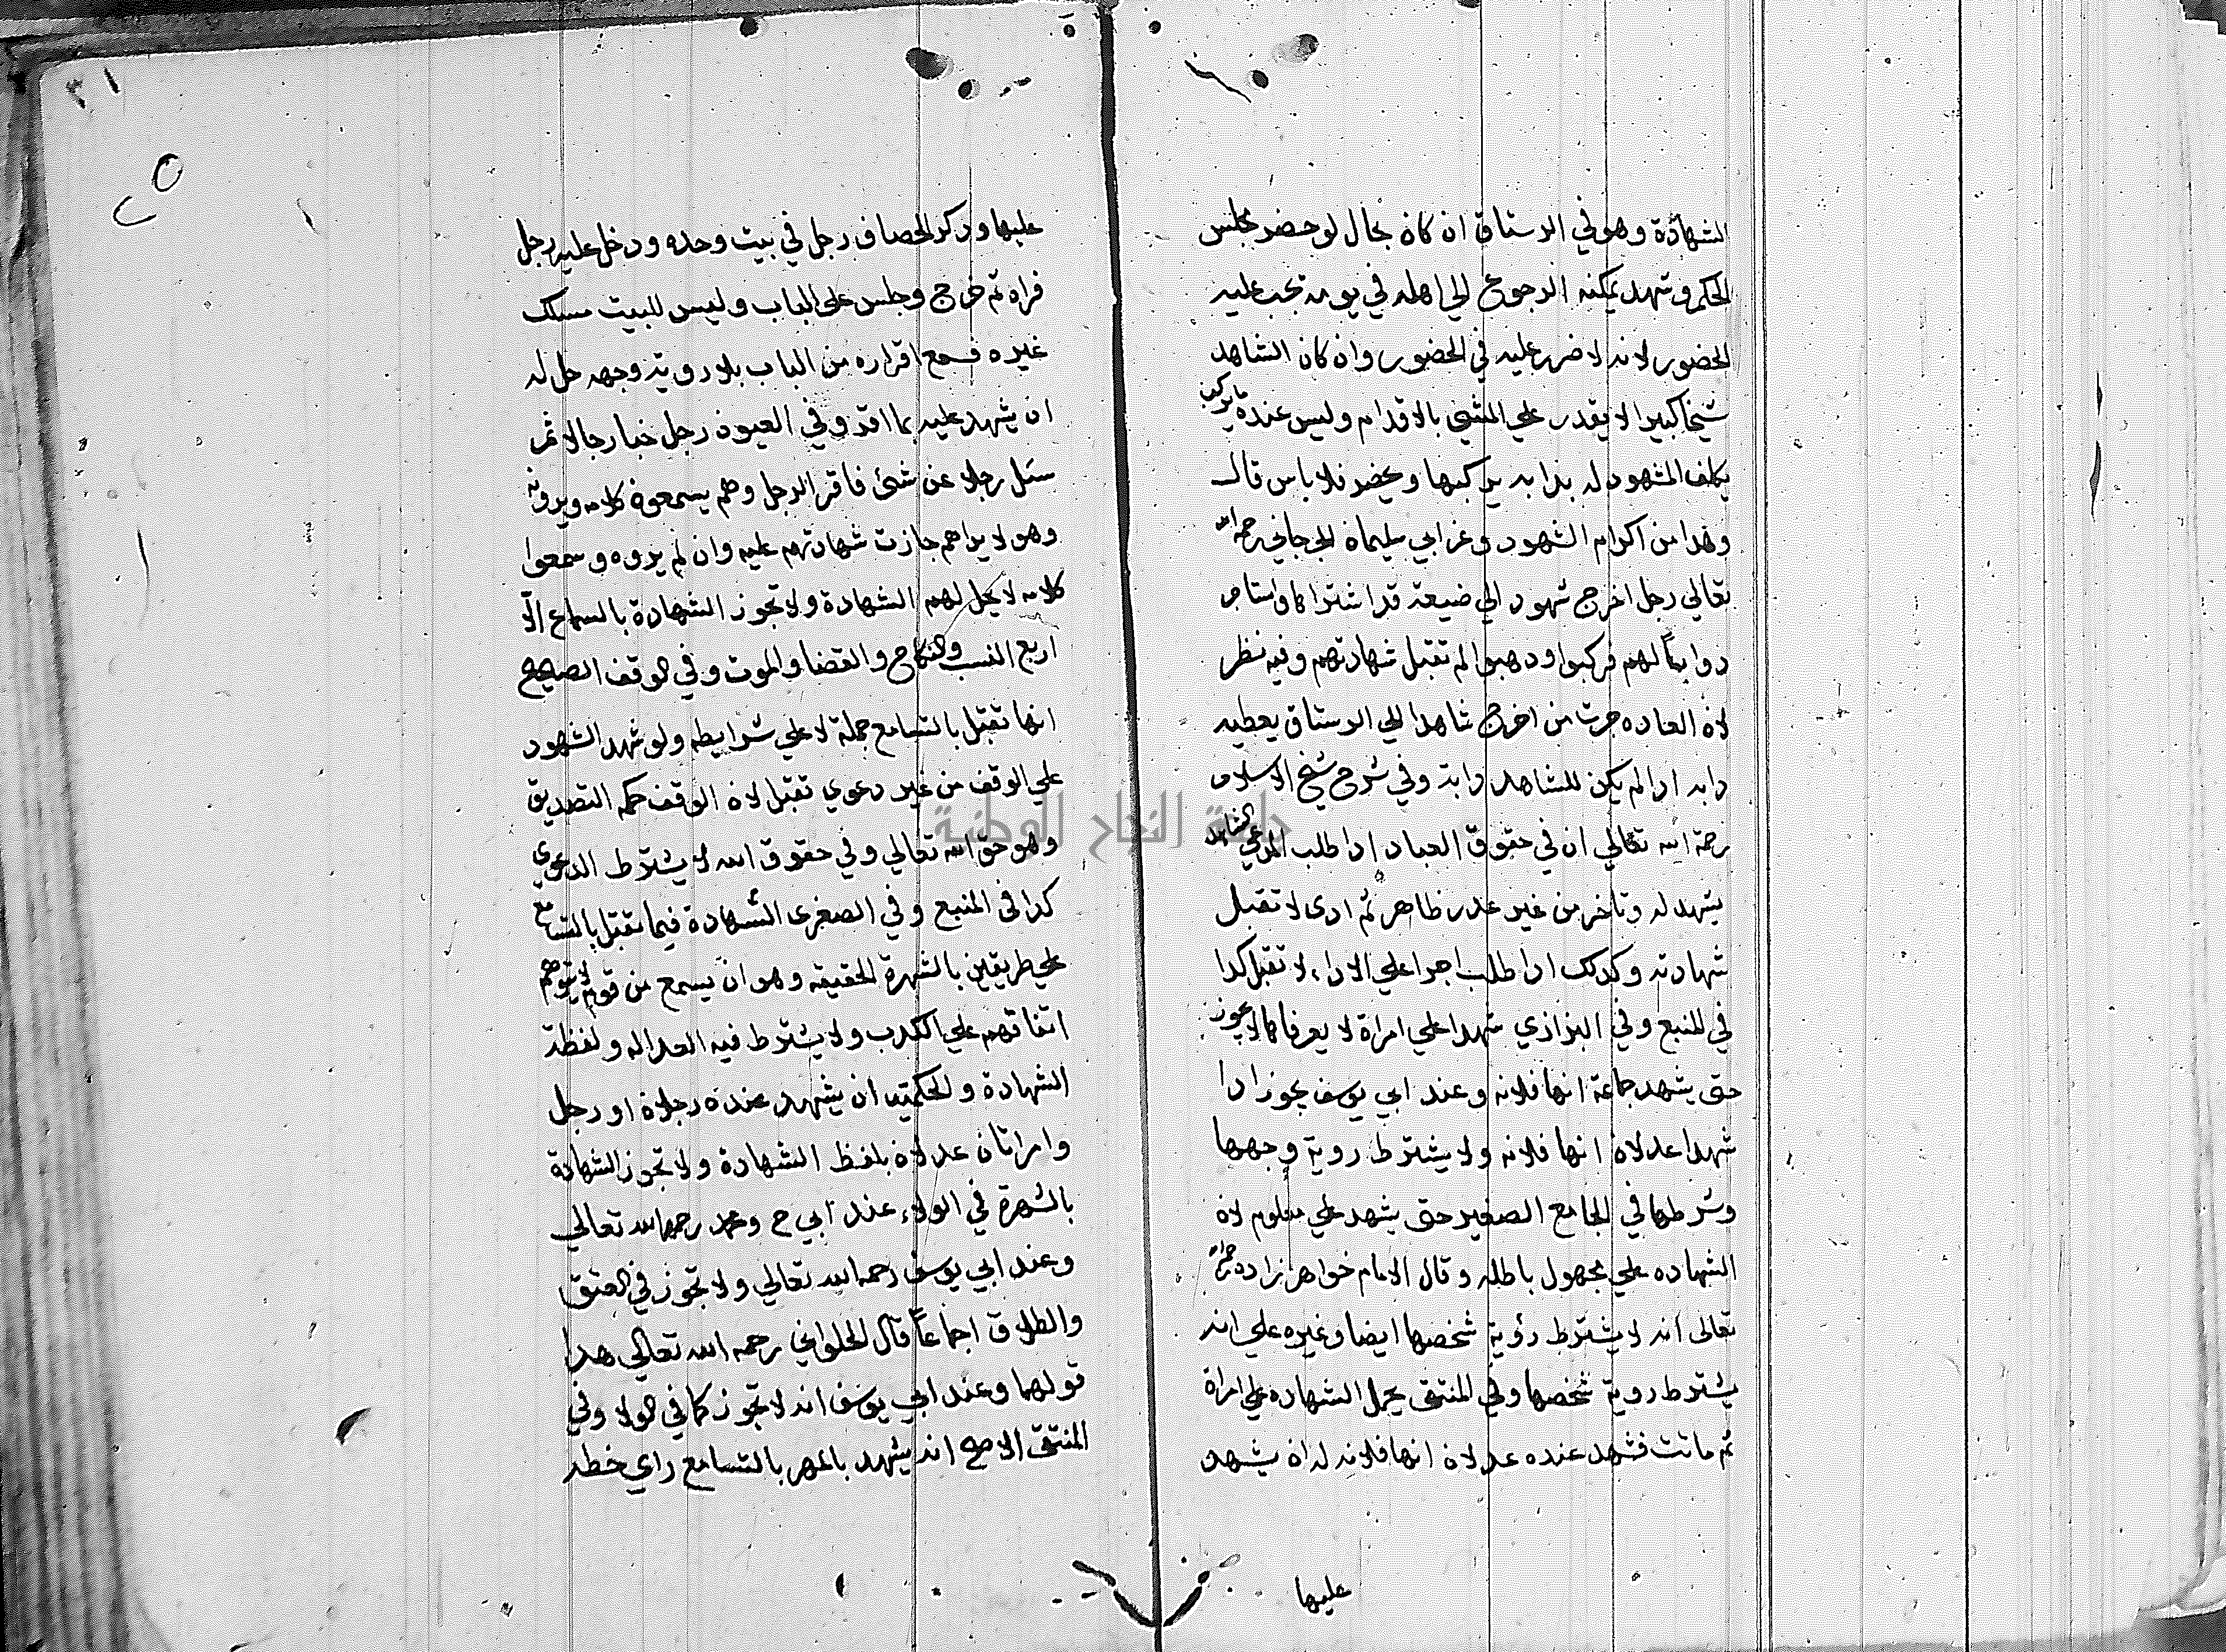 الشهادة وهو في الرستاق ان كان بحال لو حضر مجلس
الحكم وشهد يمكنه الرجوع الي اهله في يومه تجب عليه
الحضور لانه لا ضرر عليه في الحضور وان كان الشاهد
شيخا كبيرا لا يقدر علي المشي بالاقدام وليس عنده ما يركب
يكلف المشهود له بدابه يركبها ويحضر فلا باس قال
وهدا من اكرام الشهود وعن ابي سليمان الجرجاني رحمه الله
تعالي رجل اخرج شهود الي ضيعة قد اشتراها واستاجر
دوابا لهم فركبوا ودهبوا لم تقبل شهادتهم وفيه نظر
لان العاده جرت من اخرج شاهدا الي الرستاق يعطيه
دابه ادا لم يكن للشاهد دابة وفي شرح شيخ الاسلام
رحمة الله تعالي ان في حقوق العباد ادا طلب المدعي الشاهد
يشهد له وتاخر من غير عدر ظاهر ثم ادى لا تقبل
شهادته وكدلك ادا طلب اجرا علي الاداء لا تقبل كدا
في المنبع وفي البزازي شهدا علي امراة لا يعرفانها لا يجوز
حتى يشهد جماعة انها فلانه وعند ابي يوسف يجوز ادا
شهدا عدلان انها فلانه ولا يشترط روية وجهها
وشرطها في الجامع الصغير حتى يشهد علي معلوم لان
الشهاده علي مجهول باطله وقال الامام خواهر زاده رحمه الله
تعالى انه لا يشترط رؤية شخصها ايضا وغيره علي انه
يشترط روية شخصها وفي المنتقى يحمل الشهاده علي امراة
ثم ماتت فشهد عنده عدلان انها فلانه له ان يشهد
عليها
عليها ودكر الخصاف رجل في بيت وحده ودخل عليه رجل
فراه ثم خرج وجلس على الباب وليس للبيت مسلك
غيره فسمع اقراره من الباب بلا روية وجهه حل له
ان يشهد عليه بما اقر وفي العيون رجل خبا رجالا ثم
سئل رجلا عن شئ فاقر الرجل وهم يسمعون كلامه ويرونه
وهو لا يراهم جازت شهادتهم عليه وان لم يروه وسمعوا
كلامه لا يحل لهم الشهادة ولا تجوز الشهادة بالسماع الا
اربع النسب والنكاح والقضا والموت وفي الوقف الصحيح
انها تقبل بالتسامع جملة لا علي شرايطه ولو شهد الشهود
علي الوقف من غير دعوي تقبل لان الوقف حكم التصديق
وهو حق الله تعالي وفي حقوق الله لا يشترط الدعوي
كدا في المنبع وفي الصغرى الشهادة فيما تقبل بالتسامع
علي طريقين بالشهرة الحقيقه وهو ان يسمع من قوم لا يتوهم
اتفاقهم علي الكدب ولا يشترط فيه العداله ولفظة
الشهادة والحكمية ان يشهد عنده رجلان او رجل
وامراتان عدلان بلفظ الشهادة ولا تجوز الشهادة
بالشهرة في الولاء عند ابي ح ومحمد رحمهما الله تعالي
وعند ابي يوسف رحمه الله تعالي ولا تجوز في العتق
والطلاق اجماعا قال الحلواني رحمه الله تعالي هدا
قولهما وعند ابي يوسف انه لا تجوز كما في الولا وفي
المنتقى الاصح انه يشهد بالمهر بالتسامع راي خطه